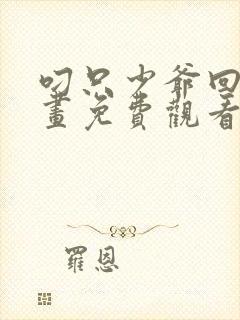 叼只少爺回
畫免費觀看
羅恩